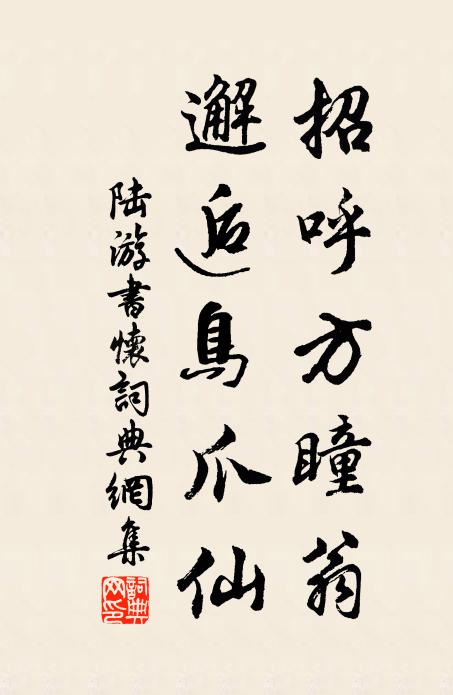 招呼方瞳翁
邂逅鳥爪仙
陆游書懷詞典網集
詞典网印